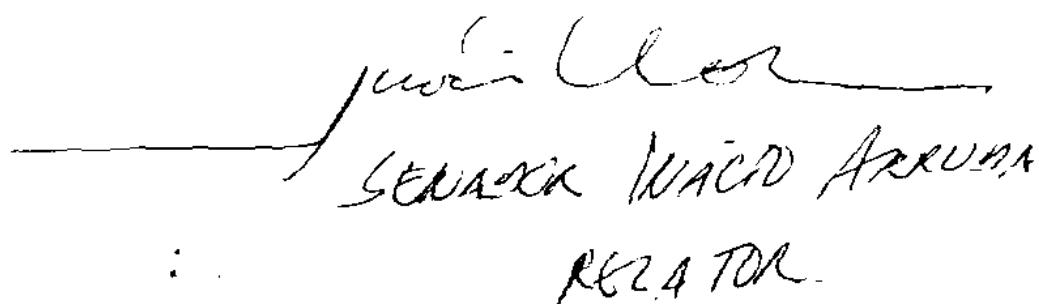 SENADOR INÁCIO ARRUDA
RELATOR.